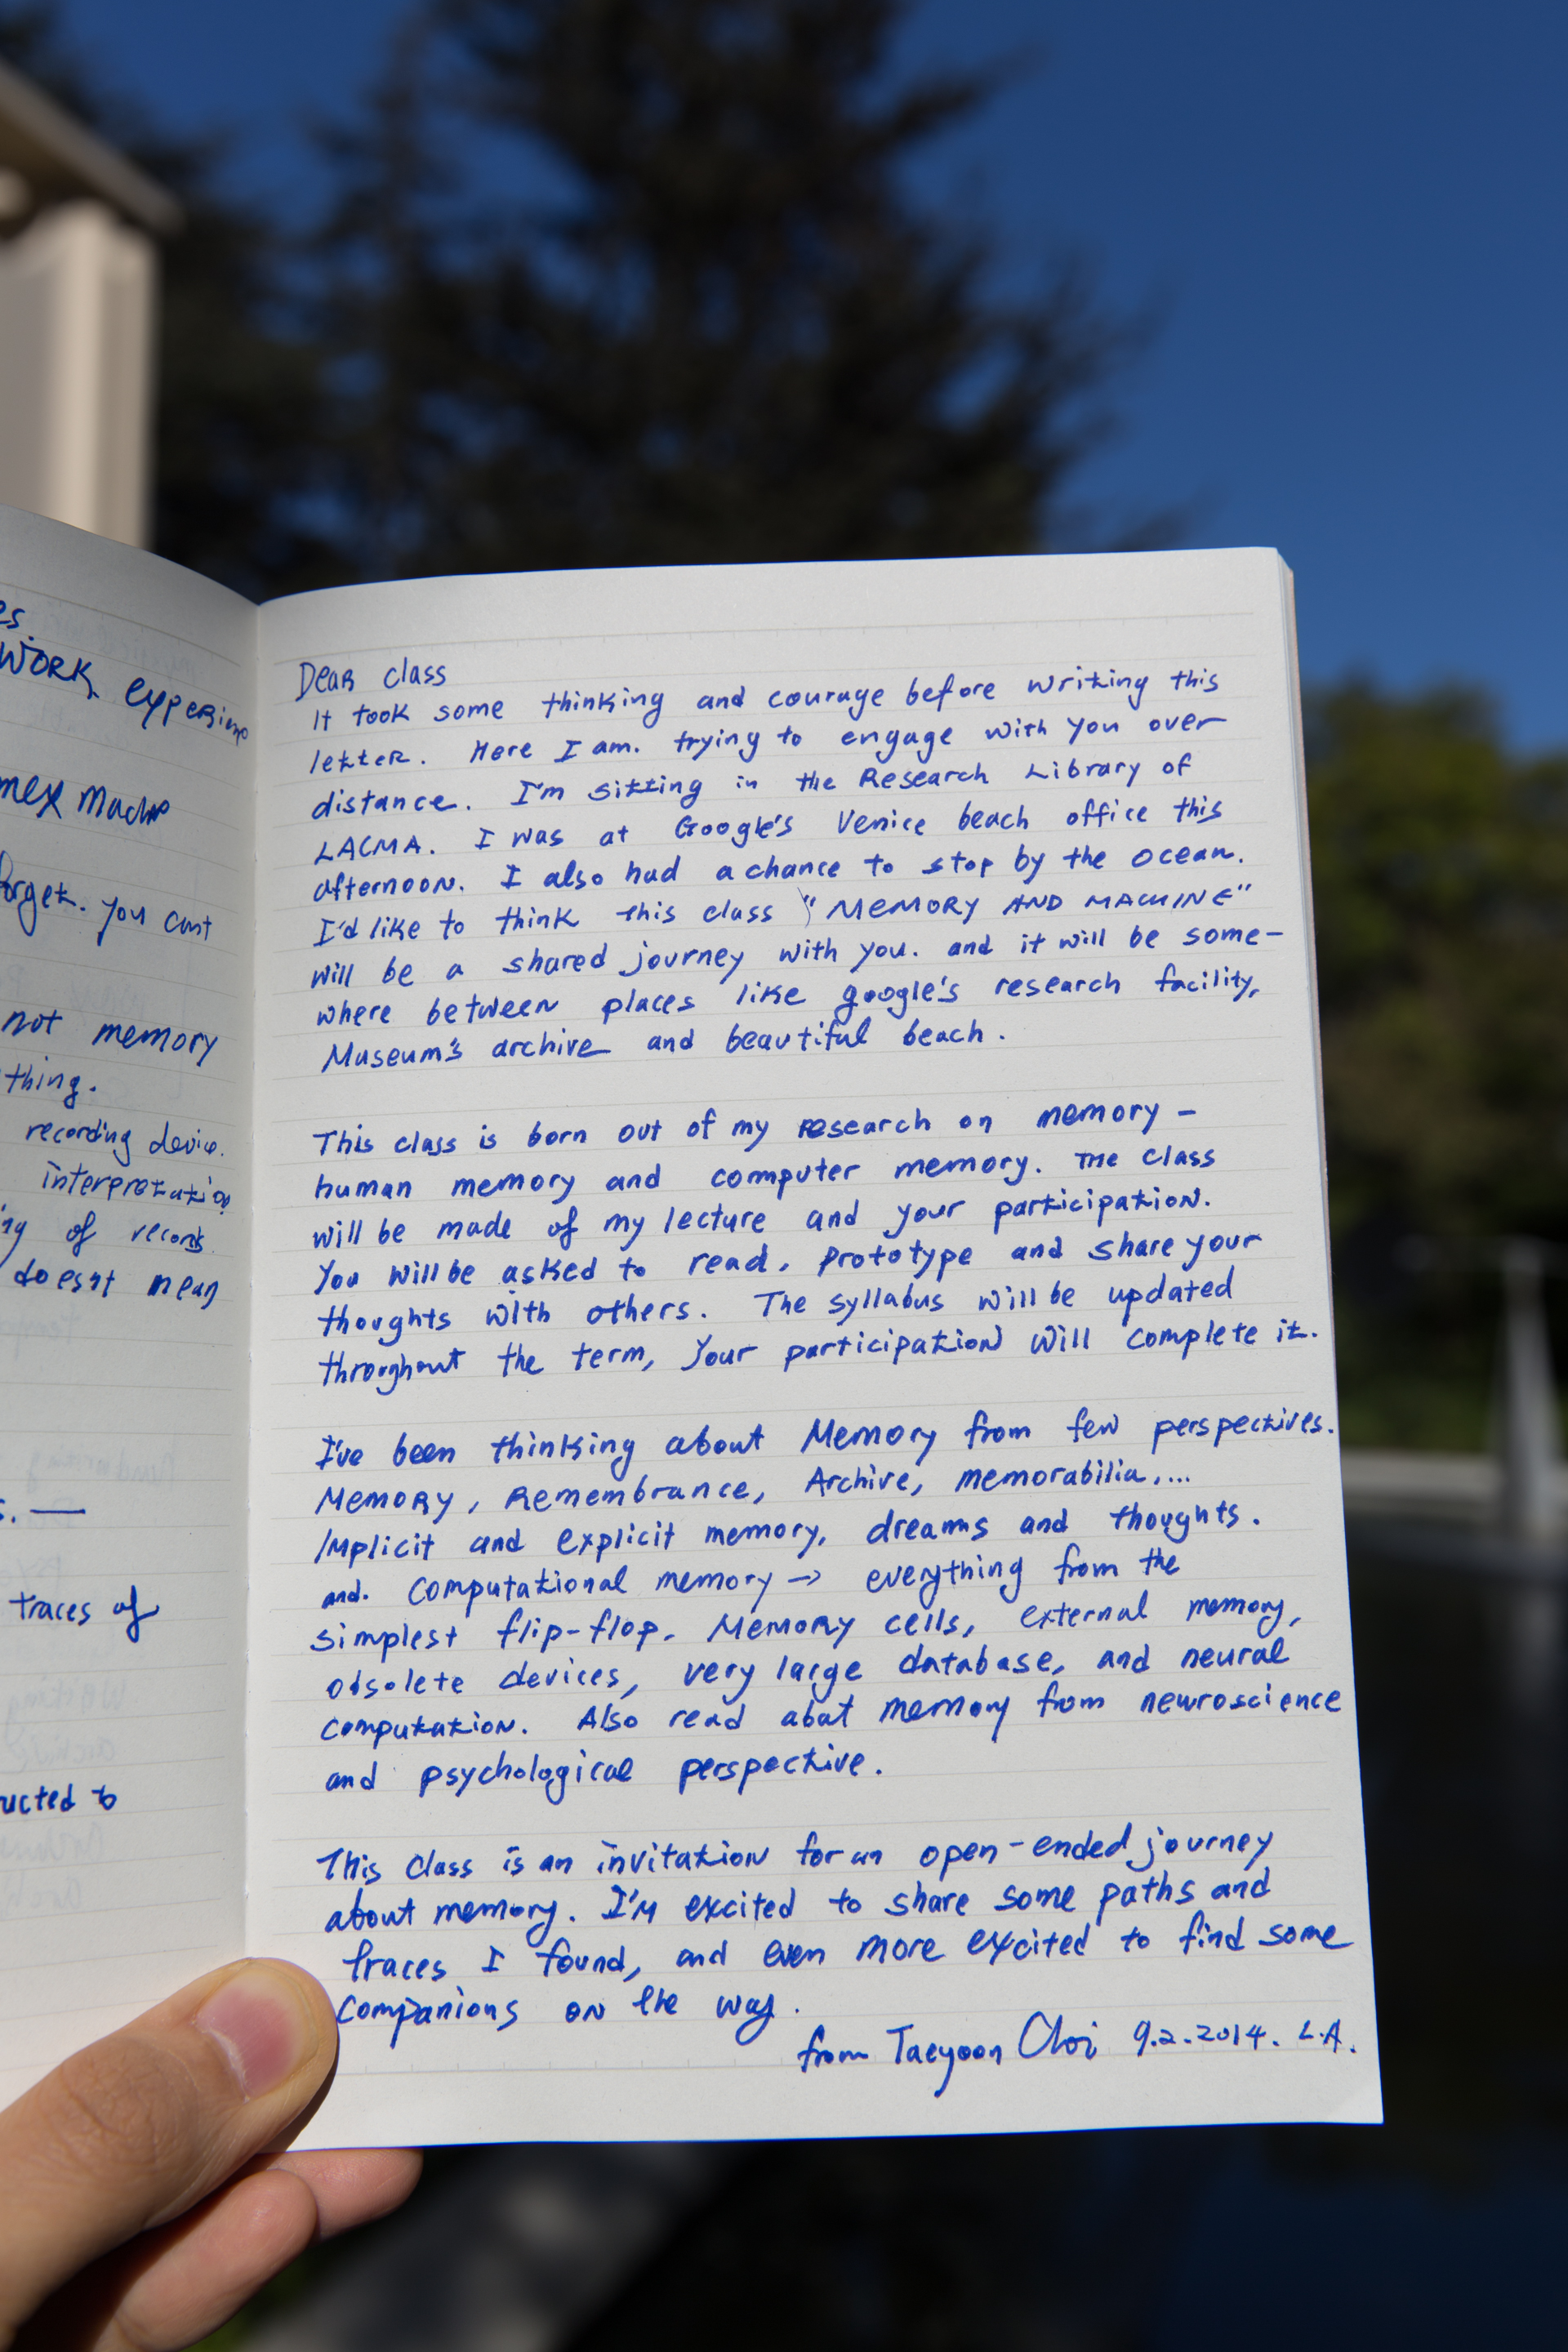 es.
WORK experience
mex Machine
forget. you cant
not memory
thing.
recording device.
interpretation
of records.
doesnt mean
s. —
traces of
ucted to
Dear class
It took some thinking and courage before writing this
letter. Here I am. trying to engage with you over
distance. I'm sitting in the Research Library of
LACMA. I was at Google's Venice beach office this
afternoon. I also had a chance to stop by the ocean.
I'd like to think this class "MEMORY AND MACHINE"
will be a shared journey with you. and it will be some-
where between places like google's research facility,
Museum's archive and beautiful beach.
This class is born out of my research on memory -
human memory and computer memory. The class
will be made of my lecture and your participation.
You will be asked to read, prototype and share your
thoughts with others. The syllabus will be updated
throughout the term, Your participation will complete it.
I've been thinking about Memory from few perspectives.
Memory, Remembrance, Archive, memorabilia,...
Implicit and explicit memory, dreams and thoughts.
and. Computational memory → everything from the
simplest flip-flop. Memory cells, external memory,
obsolete devices, very large database, and neural
computation. Also read abat memory from neuroscience
and psychological perspective.
This class is an invitation for an open-ended journey
about memory. I'm excited to share some paths and
traces I found, and even more excited to find some
companions on the way.
from Taeyoon Choi 9.2.2014. L.A.